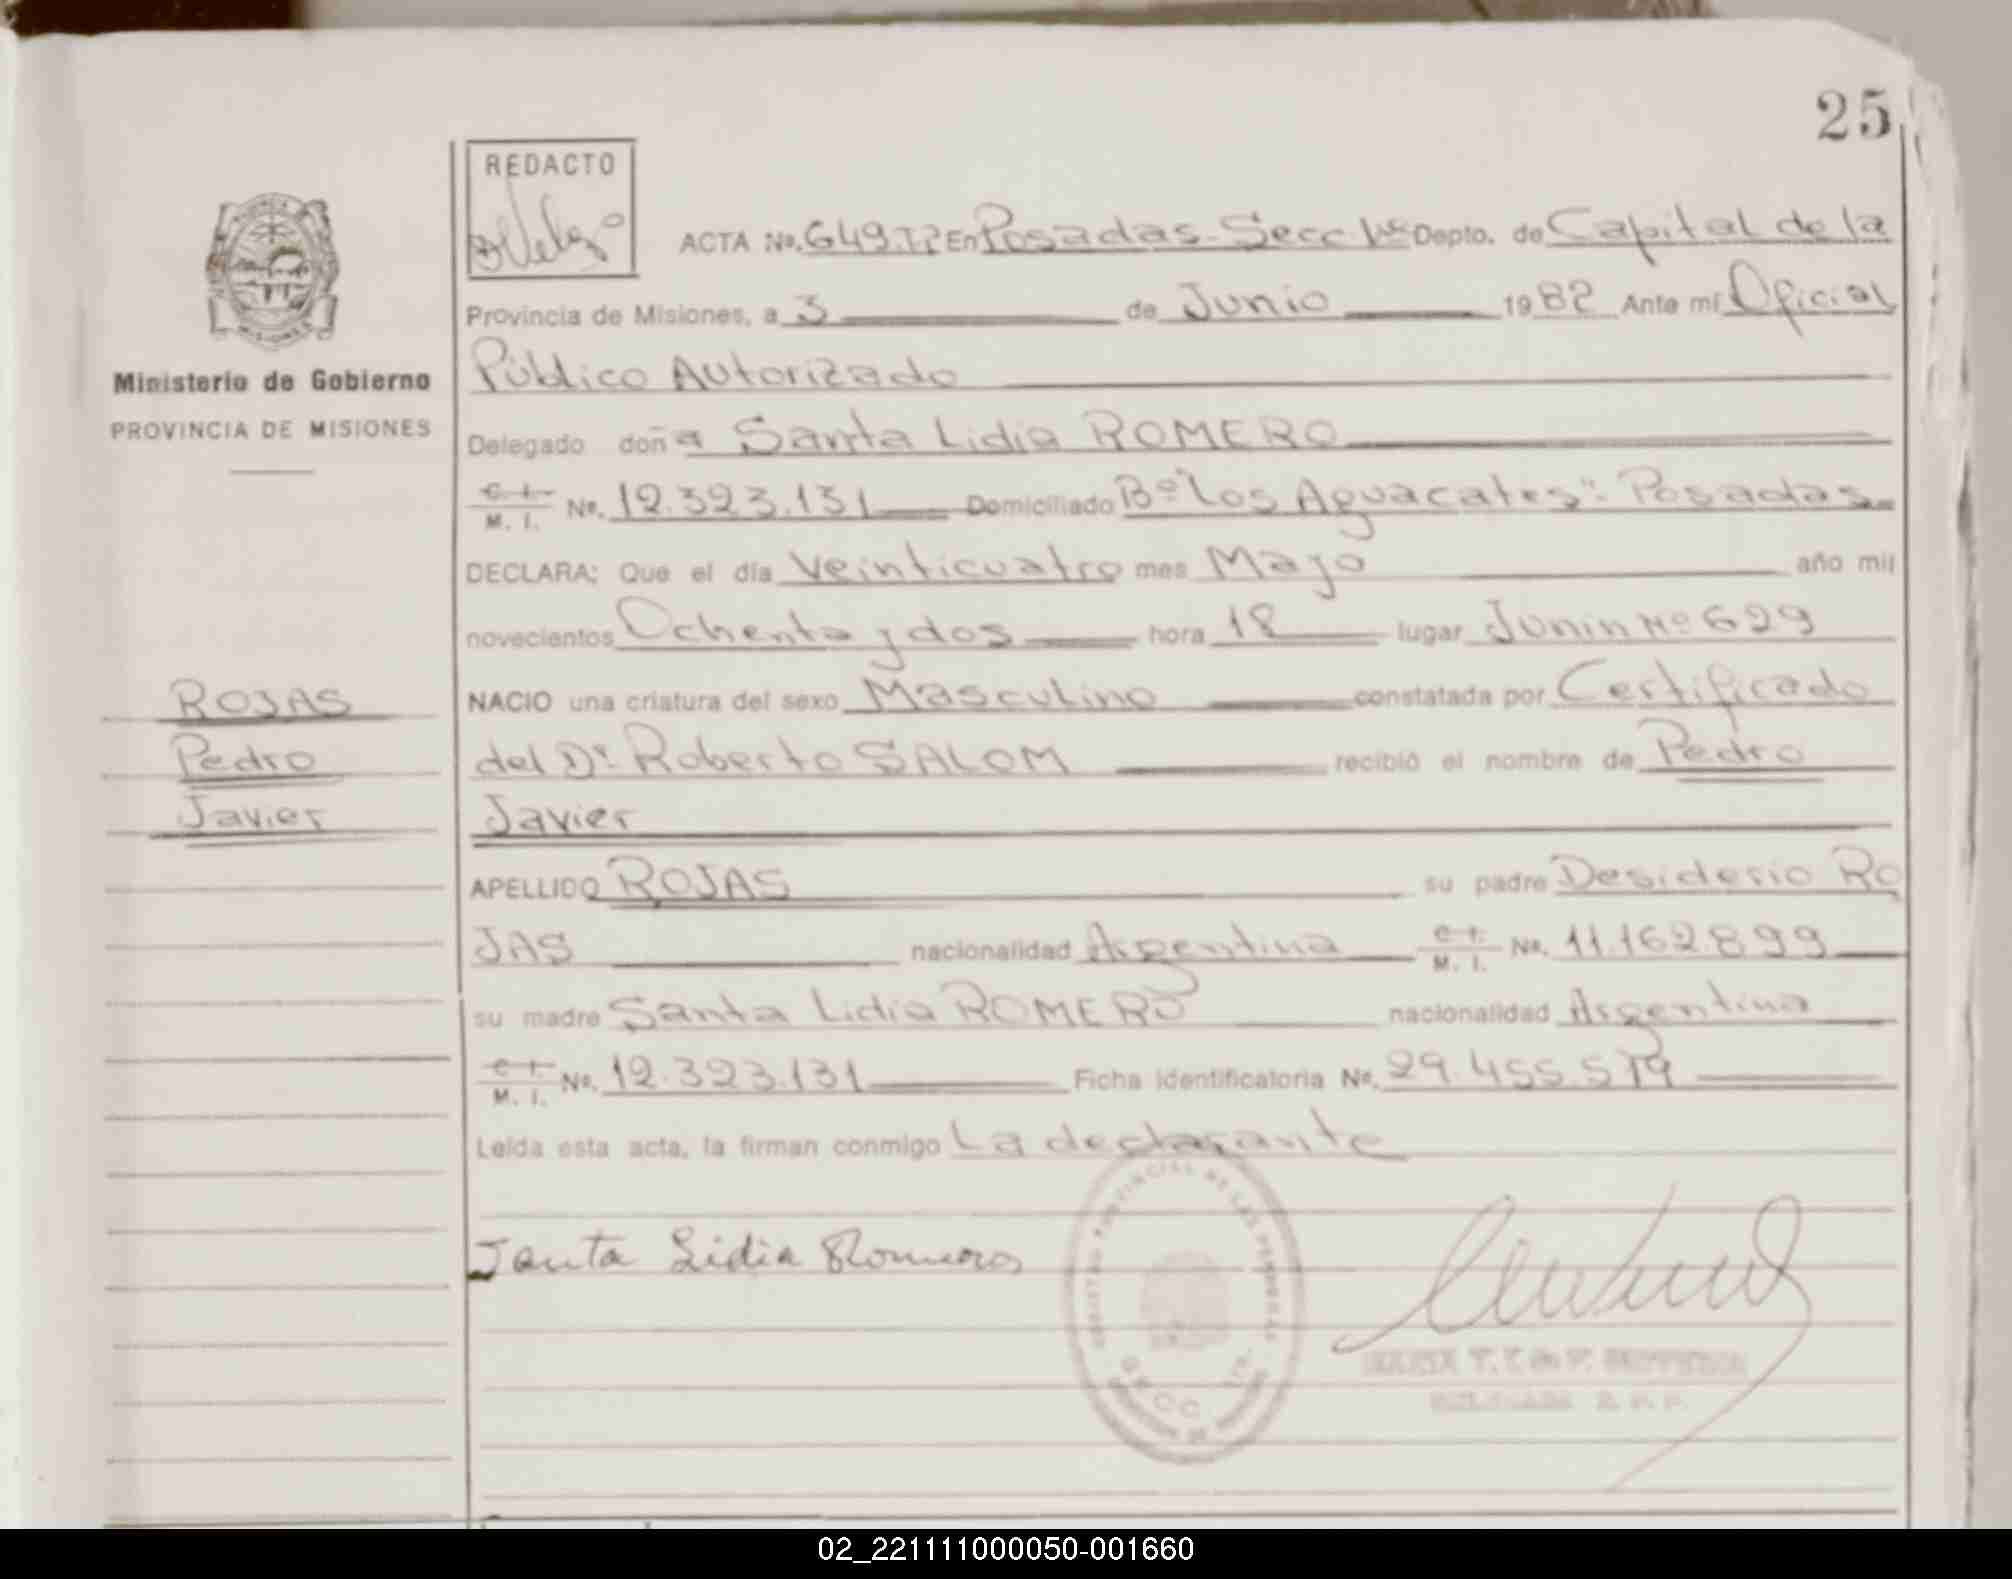 25
REDACTO
ACTA No. 649.T2 En Posadas-Secc 1ra Depto. de Capital de la
Provincia de Misiones, a 3 de Junio 1982 Ante mí Oficial
Ministerio de Gobierno
Público Autorizado
PROVINCIA DE MISIONES
Delegado doña Santa Lidia ROMERO
C. I. M. I. No. 12.323.131 Domiciliado Bº "Los Aguacates". Posadas
DECLARA: Que el día veinticuatro mes Mayo año mil
novecientos Ochenta y dos hora 18 lugar Junin Nº 629
ROJAS
NACIO una criatura del sexo Masculino constatada por Certificado
Pedro
del Dr. Roberto SALOM recibió el nombre de Pedro
Javier
Javier
APELLIDO ROJAS su padre Desiderio RO
JAS nacionalidad Argentina C. I. M. I. No. 11.162.899
su madre Santa Lidia ROMERO nacionalidad Argentina
C. I. M. I. No. 12.323.131 Ficha identificatoria No. 29.455.579
Leída esta acta, la firman conmigo La declarante
Santa Lidia Romero
REGISTRO PROVINCIAL DE LAS PERSONAS
02_221111000050-001660